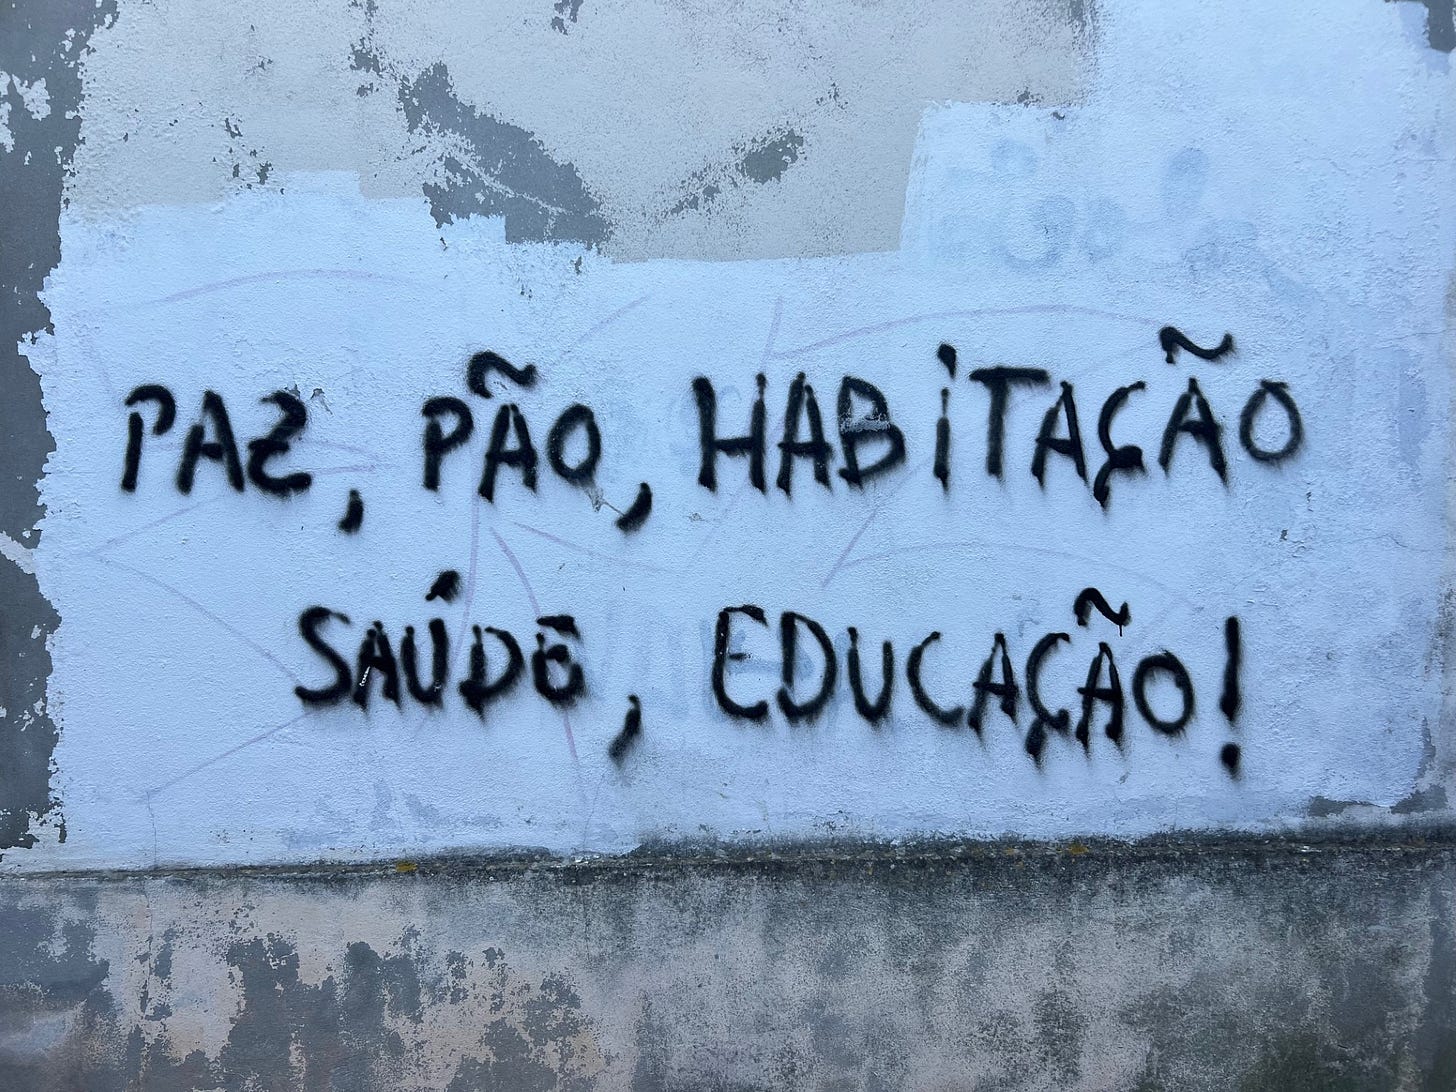 PAZ, PÃO, HABITAÇÃO
SAÚDE, EDUCAÇÃO!